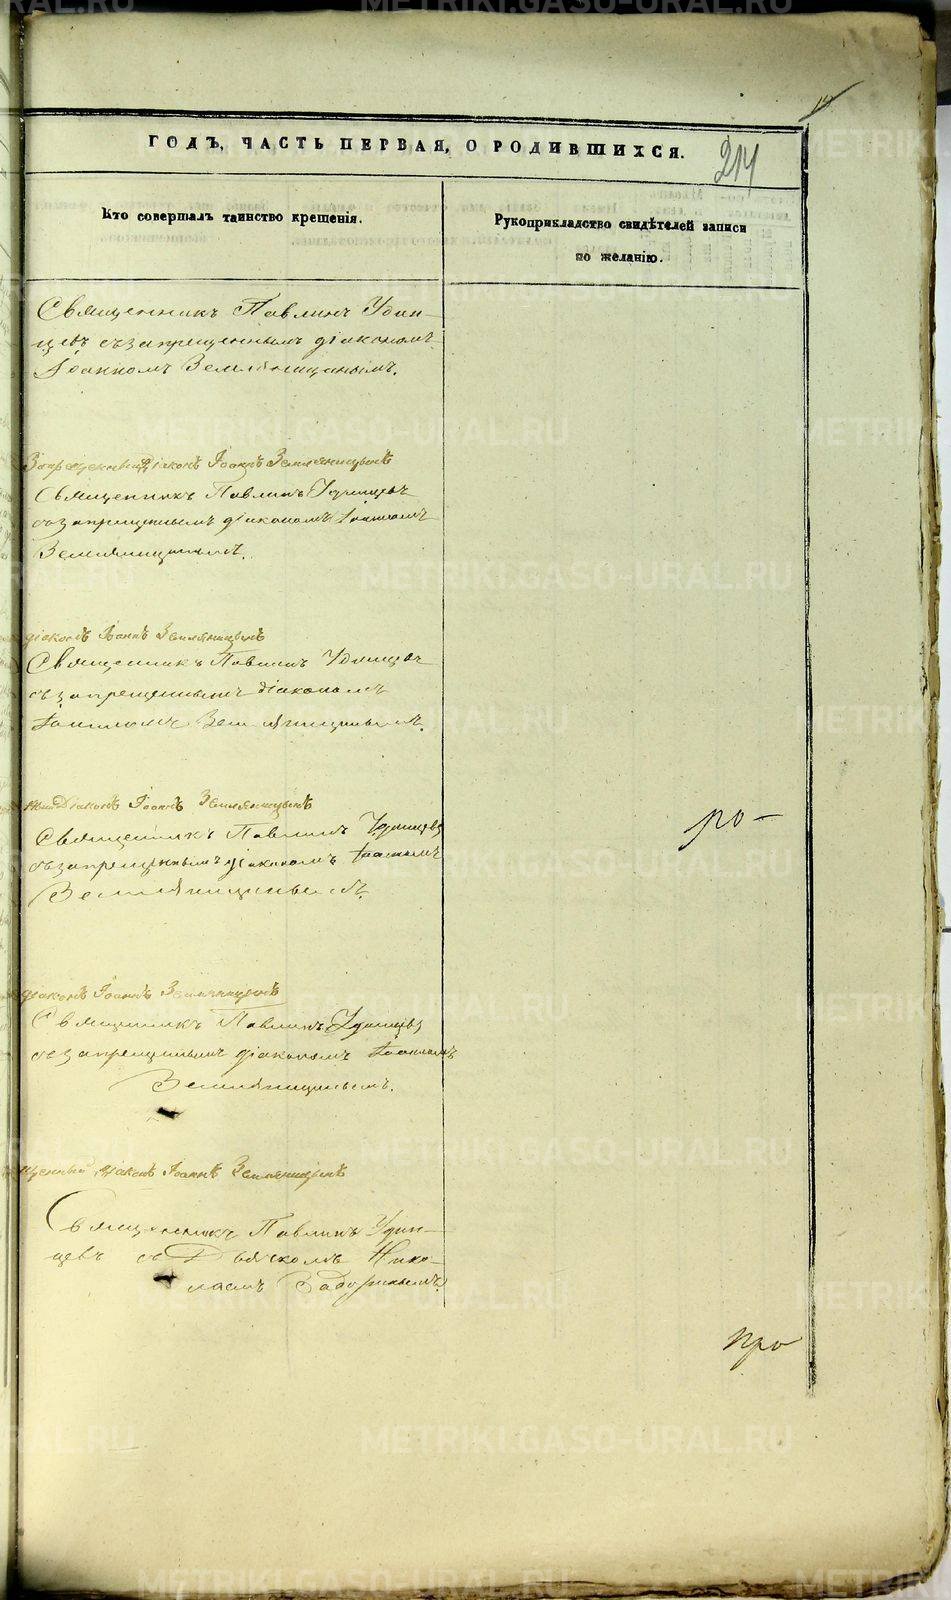 ГОДЪ, ЧАСТЬ ПЕРВАЯ, О РОДИВШИХСЯ.
214
Кто совершалъ таинство крещенія.
Рукоприкладство свидѣтелей записи
по желанію.
Священникъ Павлинъ Удин-
цевъ съ запрещеннымъ діакономъ
Іоанномъ Земляницынымъ.
Запрещенный Діаконъ Іоаннъ Земляницынъ
Священникъ Павлинъ Удинцевъ
съ запрещеннымъ діакономъ Іоанномъ
Земляницынымъ.
діаконъ Іоаннъ Земляницынъ
Священникъ Павлинъ Удинцевъ
съ запрещеннымъ діакономъ
Іоанномъ Земляницынымъ.
Діаконъ Іоаннъ Земляницынъ
Священникъ Павлинъ Удинцевъ
съ запрещеннымъ діакономъ Іоанномъ
Земляницынымъ.
ро-
діаконъ Іоаннъ Земляницынъ
Священникъ Павлинъ Удинцевъ
съ запрещеннымъ діакономъ Іоанномъ
Земляницынымъ.
щенный діаконъ Іоаннъ Земляницынъ
Священникъ Павлинъ Удин-
цевъ съ Дьячкомъ Нико-
лаемъ
про
METRIKI.GASO-URAL.RU